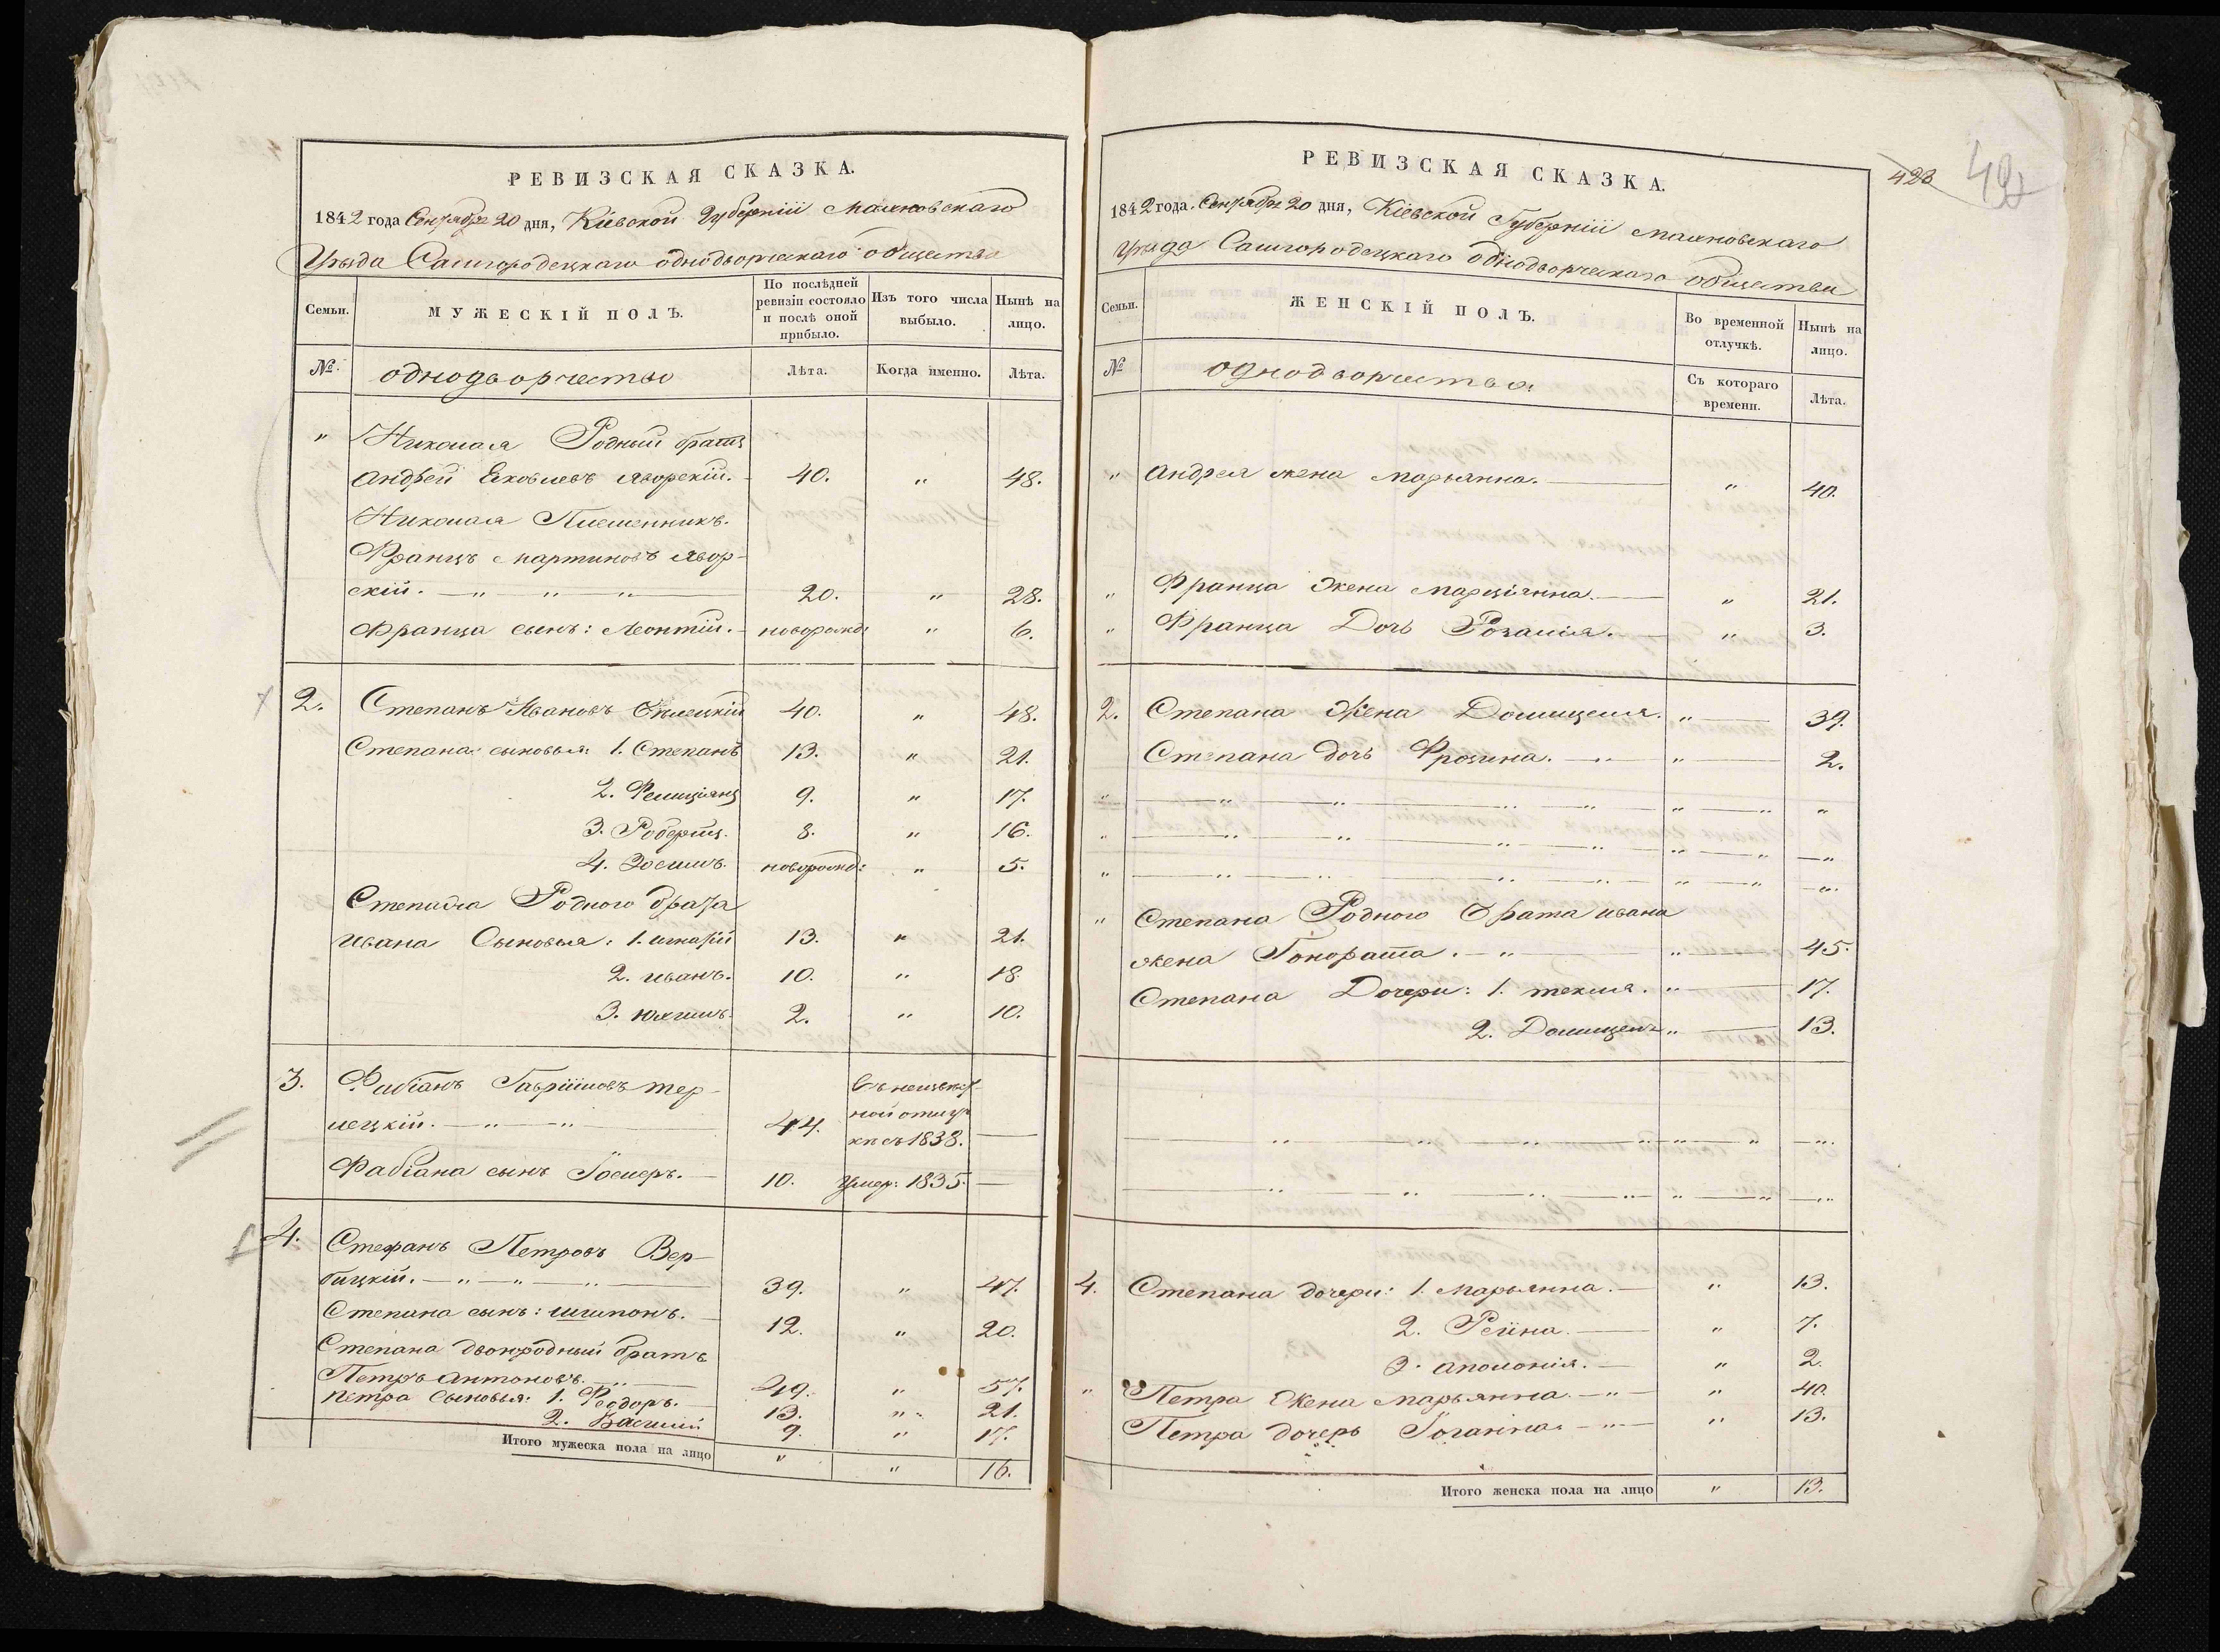 РЕВИЗСКАЯ СКАЗКА.
1842 года Сентября 20 дня, Кіевской Губерніи Махновскаго
Уезда Самгородецкаго однодворческаго общества
Семьи.
МУЖЕСКІЙ ПОЛЪ.
По послѣдней ревизіи состояло и послѣ оной прибыло.
Изъ того числа выбыло.
Нынѣ на лицо.
№
однодворчество
Лѣта.
Когда именно.
Лѣта.
" Николая Родный братъ
Андрей Яковлевъ Яворскій. 40. " 48.
Николая Племенникъ.
Францъ Мартиновъ Явор-
скій. — " — " — " 20. " 28.
Франца сынъ: Леонтій. новорожд: " 6.
2. Степанъ Ивановъ 40. " 48.
Степана сыновья: 1. Степанъ 13. " 21.
2. Фелиціянъ 9. " 17.
3. Робертъ. 8. " 16.
4. новорожд: " 5.
Степана Родного брата
Ивана Сыновья: 1. Игнатій 13. " 21.
2. Иванъ. 10. " 18.
3. 2. " 10.
3. Фабіанъ Гавріиловъ Тер-
лецкій. — " — " 44. въ неизвѣст-
ной отлуч-
кѣ съ 1838. —
Фабіана сынъ 10. Умер: 1835. —
4. Стефанъ Петровъ Вер-
бицкій. — " — " — " 39. " 47.
Степана сынъ: 12. " 20.
Степана двоюродный братъ
Петръ Антоновъ. 49. " 57.
Петра Сыновья: 1. Феодоръ. 13. " 21.
2. Василій 9. " 17.
Итого мужеска пола на лицо " " 16.
423
РЕВИЗСКАЯ СКАЗКА.
1842 года. Сентября 20 дня, Кіевской Губерніи Махновскаго
Уезда Самгородецкаго однодворческаго общества
Семьи.
ЖЕНСКІЙ ПОЛЪ.
Во временной отлучкѣ.
Нынѣ на лицо.
№
однодворчества
Съ котораго времени.
Лѣта.
" Андрея жена Марьянна. " 40.
" Франца Жена Марціянна. " 21.
" Франца Дочь Розалія. " 3.
2. Степана Жена Домицелля. " 39.
Степана дочь Фрозина. " 2.
" Степана Родного брата Ивана
жена Гонората. " 45.
Степана Дочери: 1. Текля. " 17.
2. Домицеля " 13.
4. Степана дочери: 1. Марьянна. " 13.
2. Реина. " 7.
3. Аполонія. " 2.
" Петра Жена Марьянна. " 40.
Петра дочерь Іоганна. " 13.
Итого женска пола на лицо " 13.